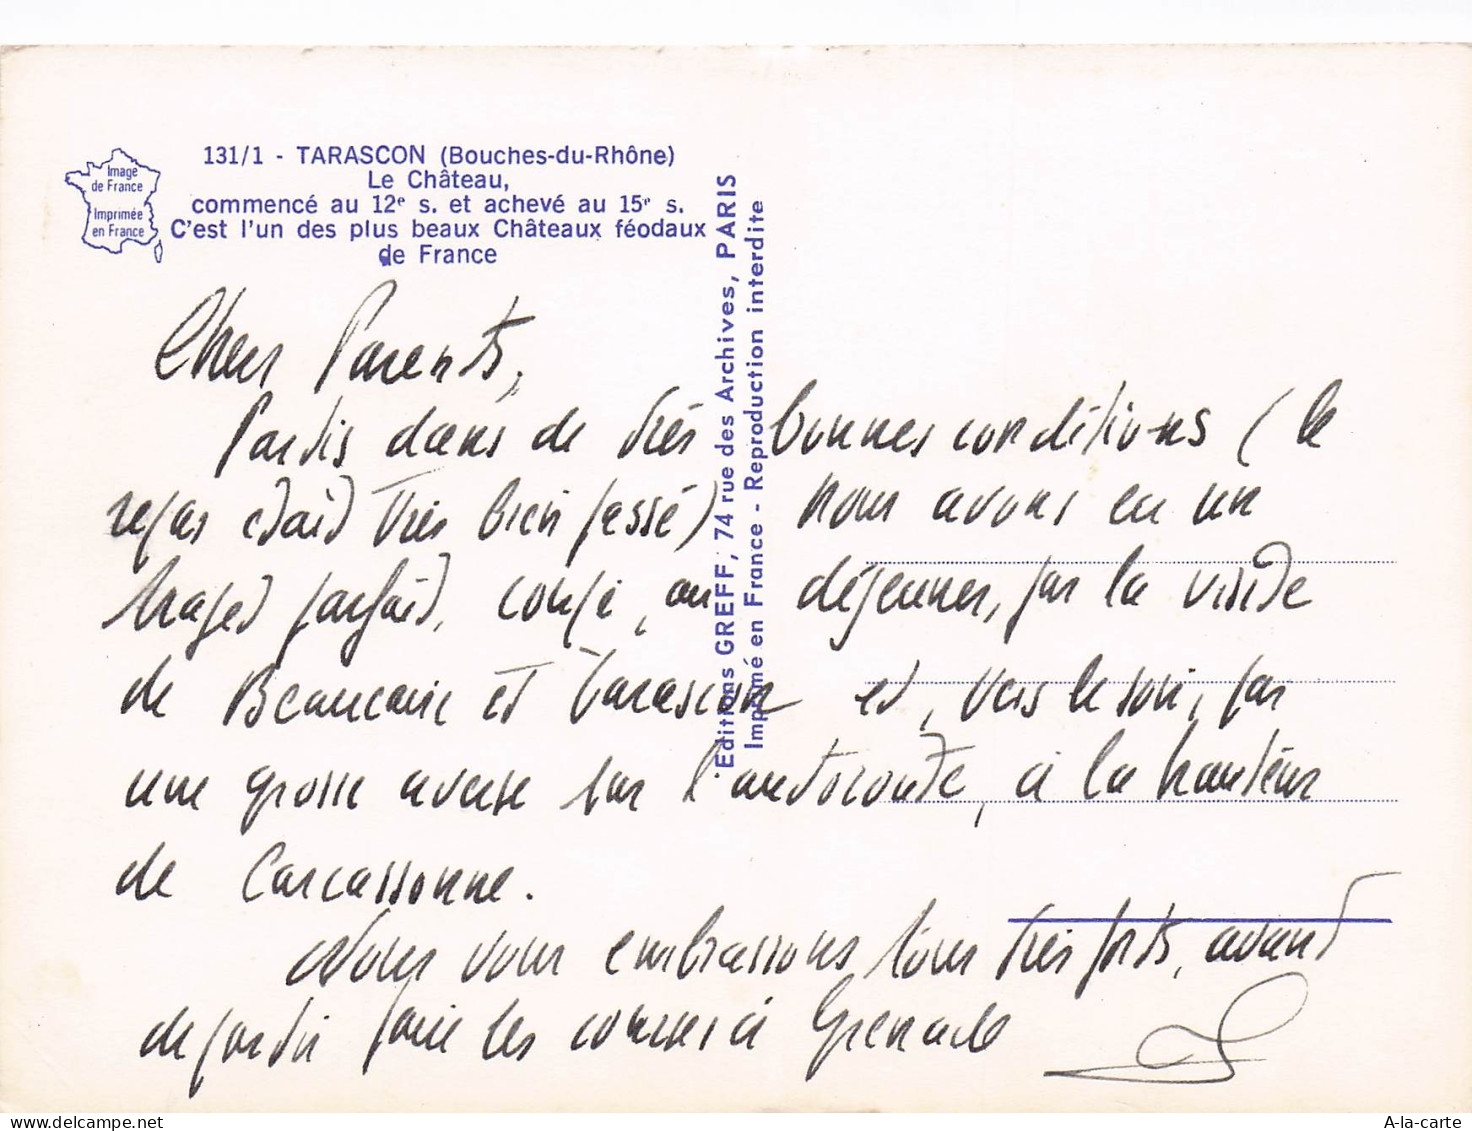 131/1 - TARASCON (Bouches-du-Rhône)
Le Château,
commencé au 12e s. et achevé au 15e s.
C'est l'un des plus beaux Châteaux féodaux
de France
Image
de France
Imprimée
en France
Editions GREFF, 74 rue des Archives, PARIS
Imprimé en France - Reproduction interdite
Chers Parents,
Partis dans de très bonnes conditions (le
repas était très bien passé) nous avons eu un
trajet parfait, coupé, au déjeuner, par la visite
de Beaucaire et Tarascon et, vers le soir, par
une grosse averse sur l'autoroute, à la hauteur
de Carcassonne.
Nous vous embrassons tous très forts, avant
de partir faire les courses à Grenade
A-la-carte